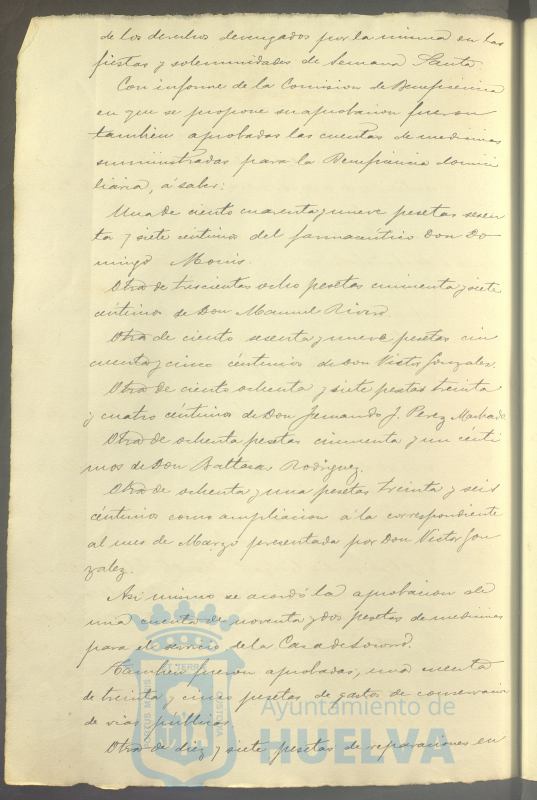 de los derechos devengados por la misma en las
fiestas y solemnidades de Semana Santa.
Con informe de la Comision de Beneficencia
en que se propone su aprobacion fueron
tambien aprobadas las cuentas de medicinas
suministradas para la Beneficencia domici
liaria, á saber:
Una de ciento cuarenta y nueve pesetas sesen
ta y siete céntimos del farmacéutico Don Do
mingo
Otra de trescientas ocho pesetas cincuenta y siete
céntimos de Don Manuel Rivero.
Otra de ciento sesenta y nueve pesetas cin
cuenta y cinco céntimos de Don Victor Gonzalez.
Otra de ciento ochenta y siete pesetas treinta
y cuatro céntimos de Don Fernando J. Perez Machado.
Otra de ochenta pesetas cincuenta y un cénti
mos de Don Baltasar Rodriguez.
Otra de ochenta y una pesetas treinta y seis
céntimos como ampliacion á la correspondiente
al mes de Marzo presentada por Don Victor Gon
zalez.
Asi mismo se acordó la aprobacion de
una cuenta de noventa y dos pesetas de medicinas
para el servicio de la Casa de Socorro.
Tambien fueron aprobadas, una cuenta
de treinta y cinco pesetas de gastos de conservacion
de vias públicas.
Otra de diez y siete pesetas de reparaciones en
Ayuntamiento de
HUELVA